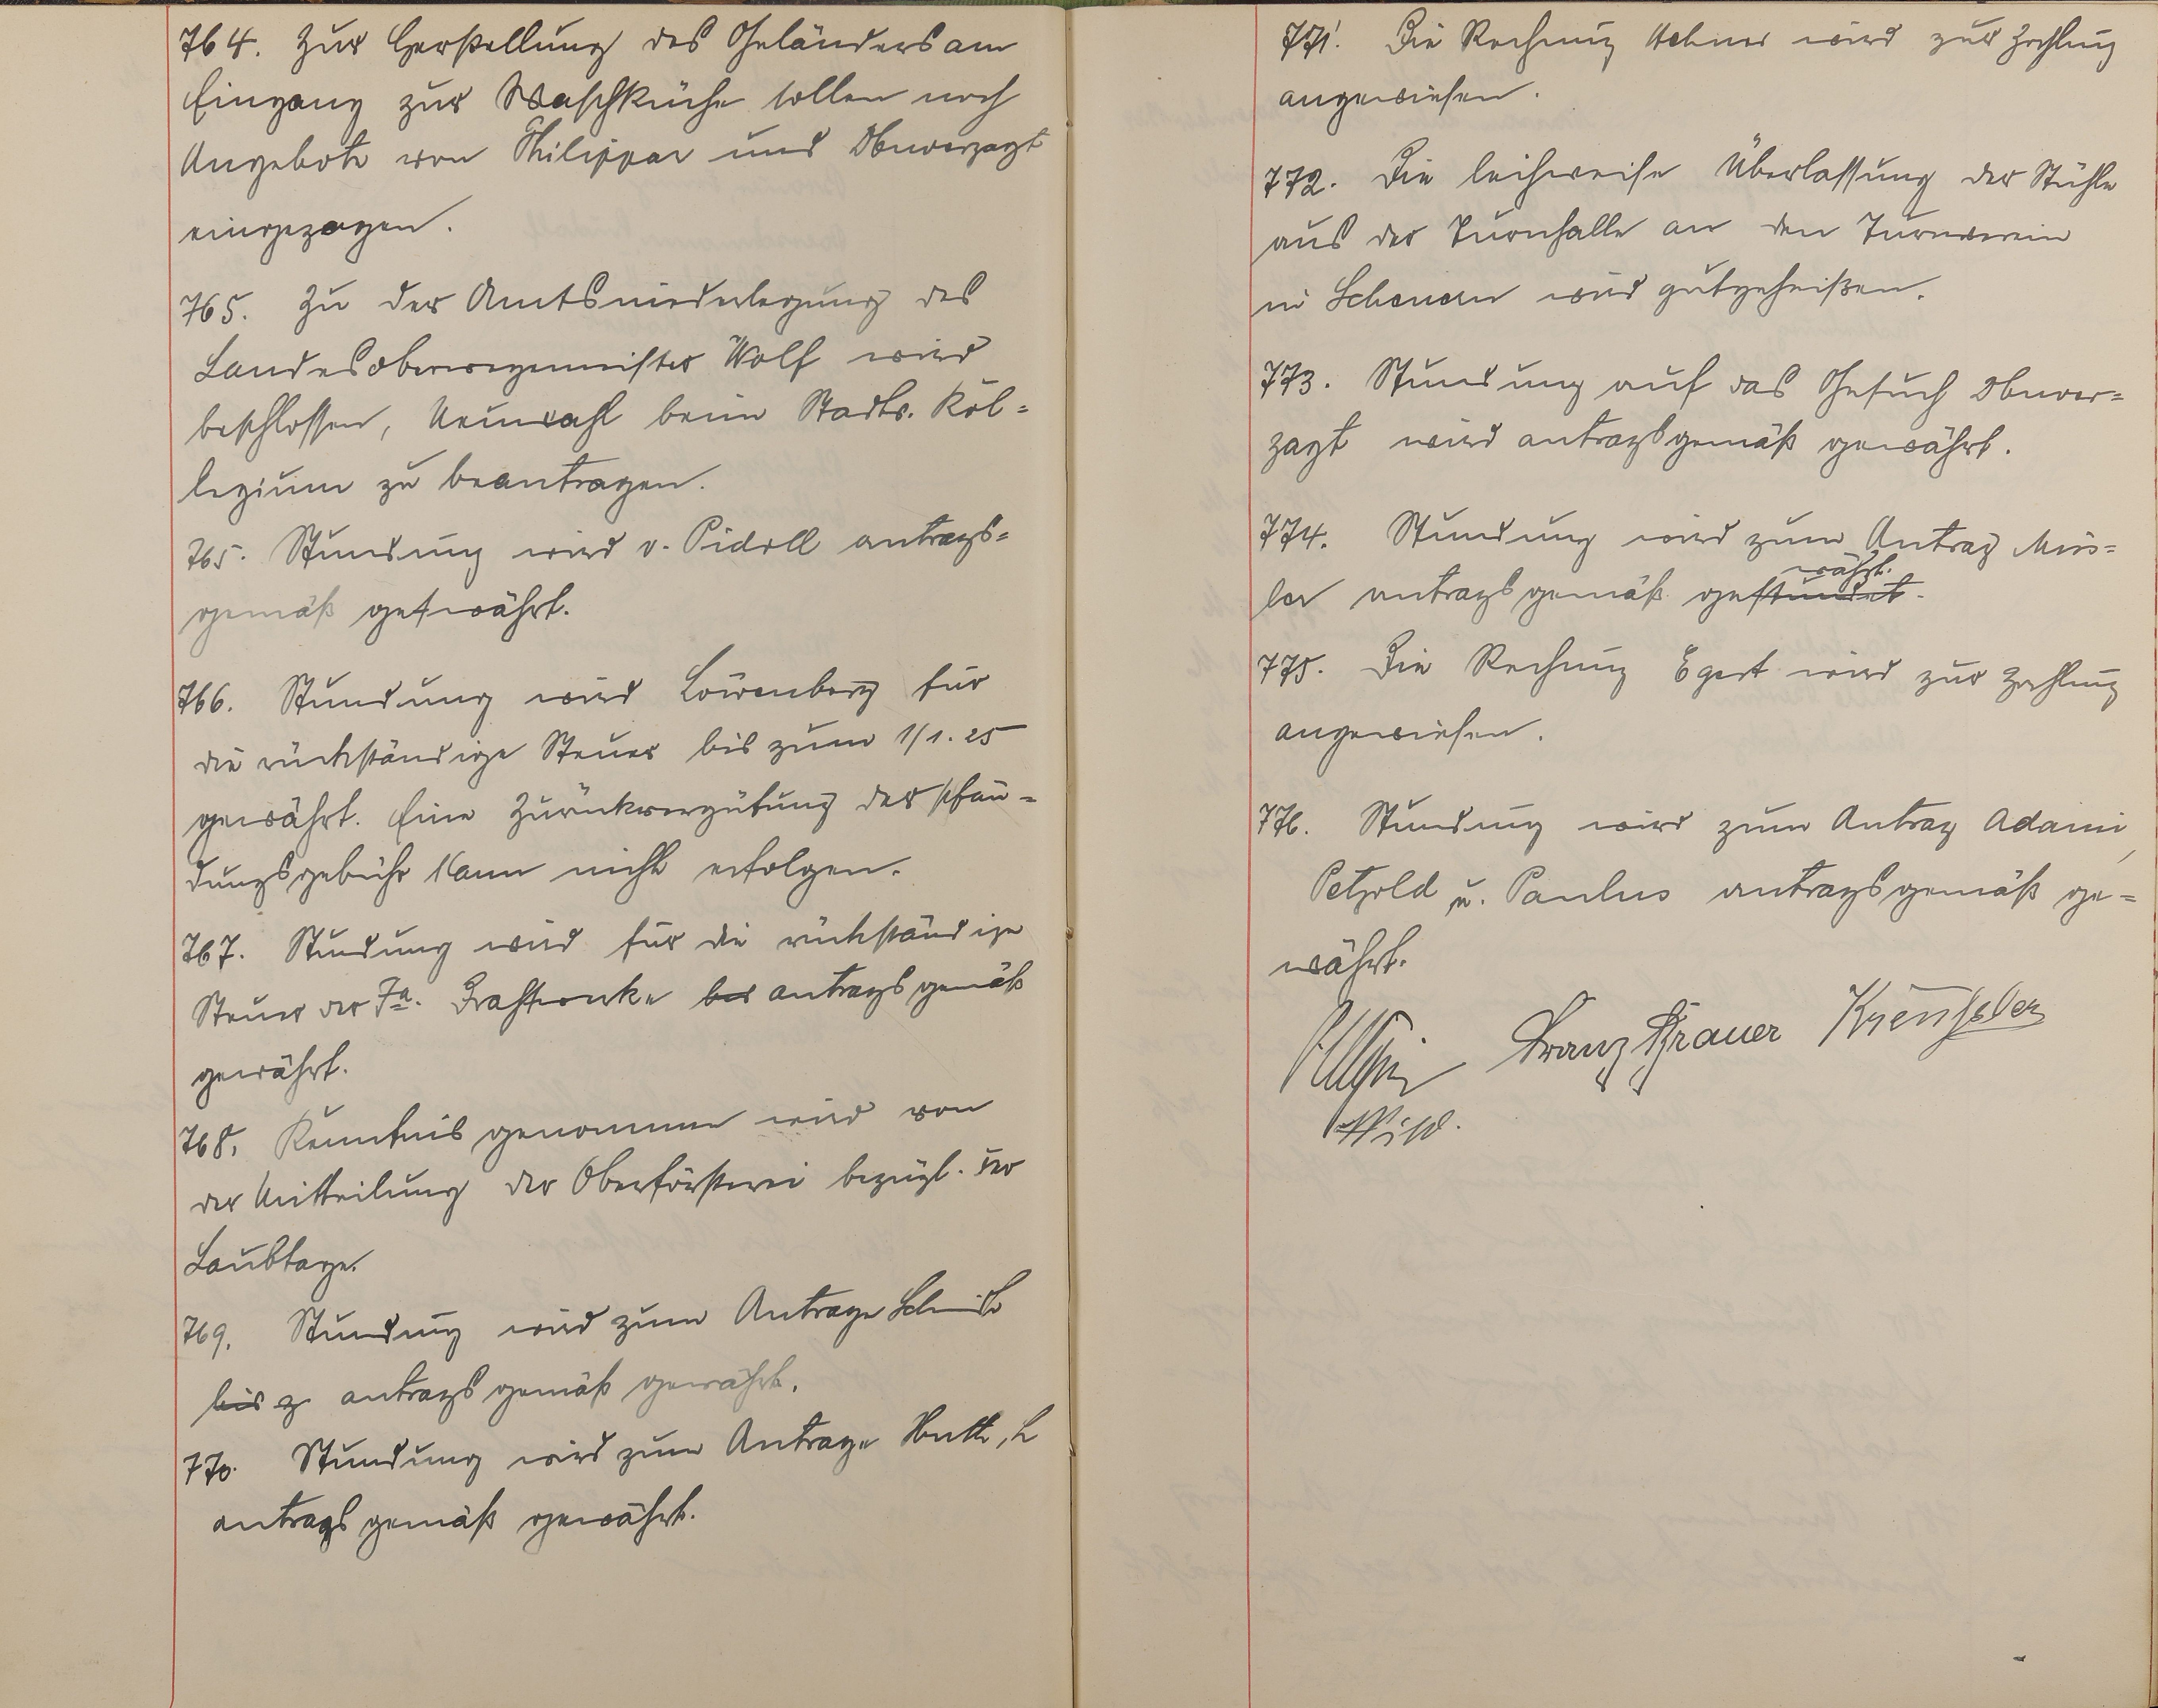 764. Zur Herstellung des Geländers am
Eingang zur Waschküche sollen noch
Angebote von Philippar und Obnverzagt
eingezogen.
765. Zu der Amtsniederlegung des
Landesoberwegemeister Wolf wird
beschlossen, Neuwahl beim Stadtv. Kol=
legium zu beantragen.
765. Stundung wird v. Pidoll antrags=
gemäß gewährt.
766. Stundung wird Löwenberg für
die rückständige Steuer bis zum 1/1. 25
gewährt. Eine Zurückvergütung der Pfän=
dungsgebühr kann nicht erfolgen.
767. Stundung wird für die rückständige
Steuer der Fa. Drahtwerke bis antragsgemäß
gewährt.
768. Kenntnis genommen wird von
der Mitteilung der Oberförsterei bezügl. der
Laubtage.
769. Stundung wird zum Antrage Schmidt
bis z antragsgemäß gewährt.
770. Stundung wird zum Antrage
antragsgemäß gewährt.
771. Die Rechnung wird zur Zahlung
angewiesen.
772. Die leihweise Überlassung der Stühle
aus der Turnhalle an den Turnverein
in Scheuern wird gutgeheißen.
773. Stundung auf das Gesuch Obnver=
zagt wird antragsgemäß gewährt.
774. Stundung wird zum Antrag Mös=
ler antragsgemäß gestundet.
währt.
775. Die Rechnung Egert wird zur Zahlung
angewiesen.
776. Stundung wird zum Antrag Adami,
Petzold u. Paulus antragsgemäß ge=
währt.
Franz Brauer